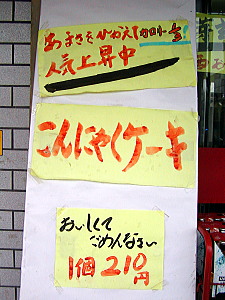 あまさをひかえてカロリー1/3
人気上昇中
こんにゃくケーキ
おいしくて
ごめんなさい
1個 210円